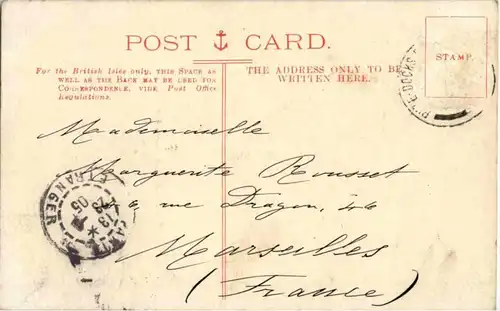 POST CARD.
For the British Isles only, THIS SPACE AS
WELL AS THE BACK MAY BE USED FOR
CORRESPONDENCE, VIDE Post Office
Regulations.
THE ADDRESS ONLY TO BE
WRITTEN HERE.
STAMP.
Mademoiselle
Marguerite Rousset
rue Dragon,
Marseilles
(France)
ETRANGER